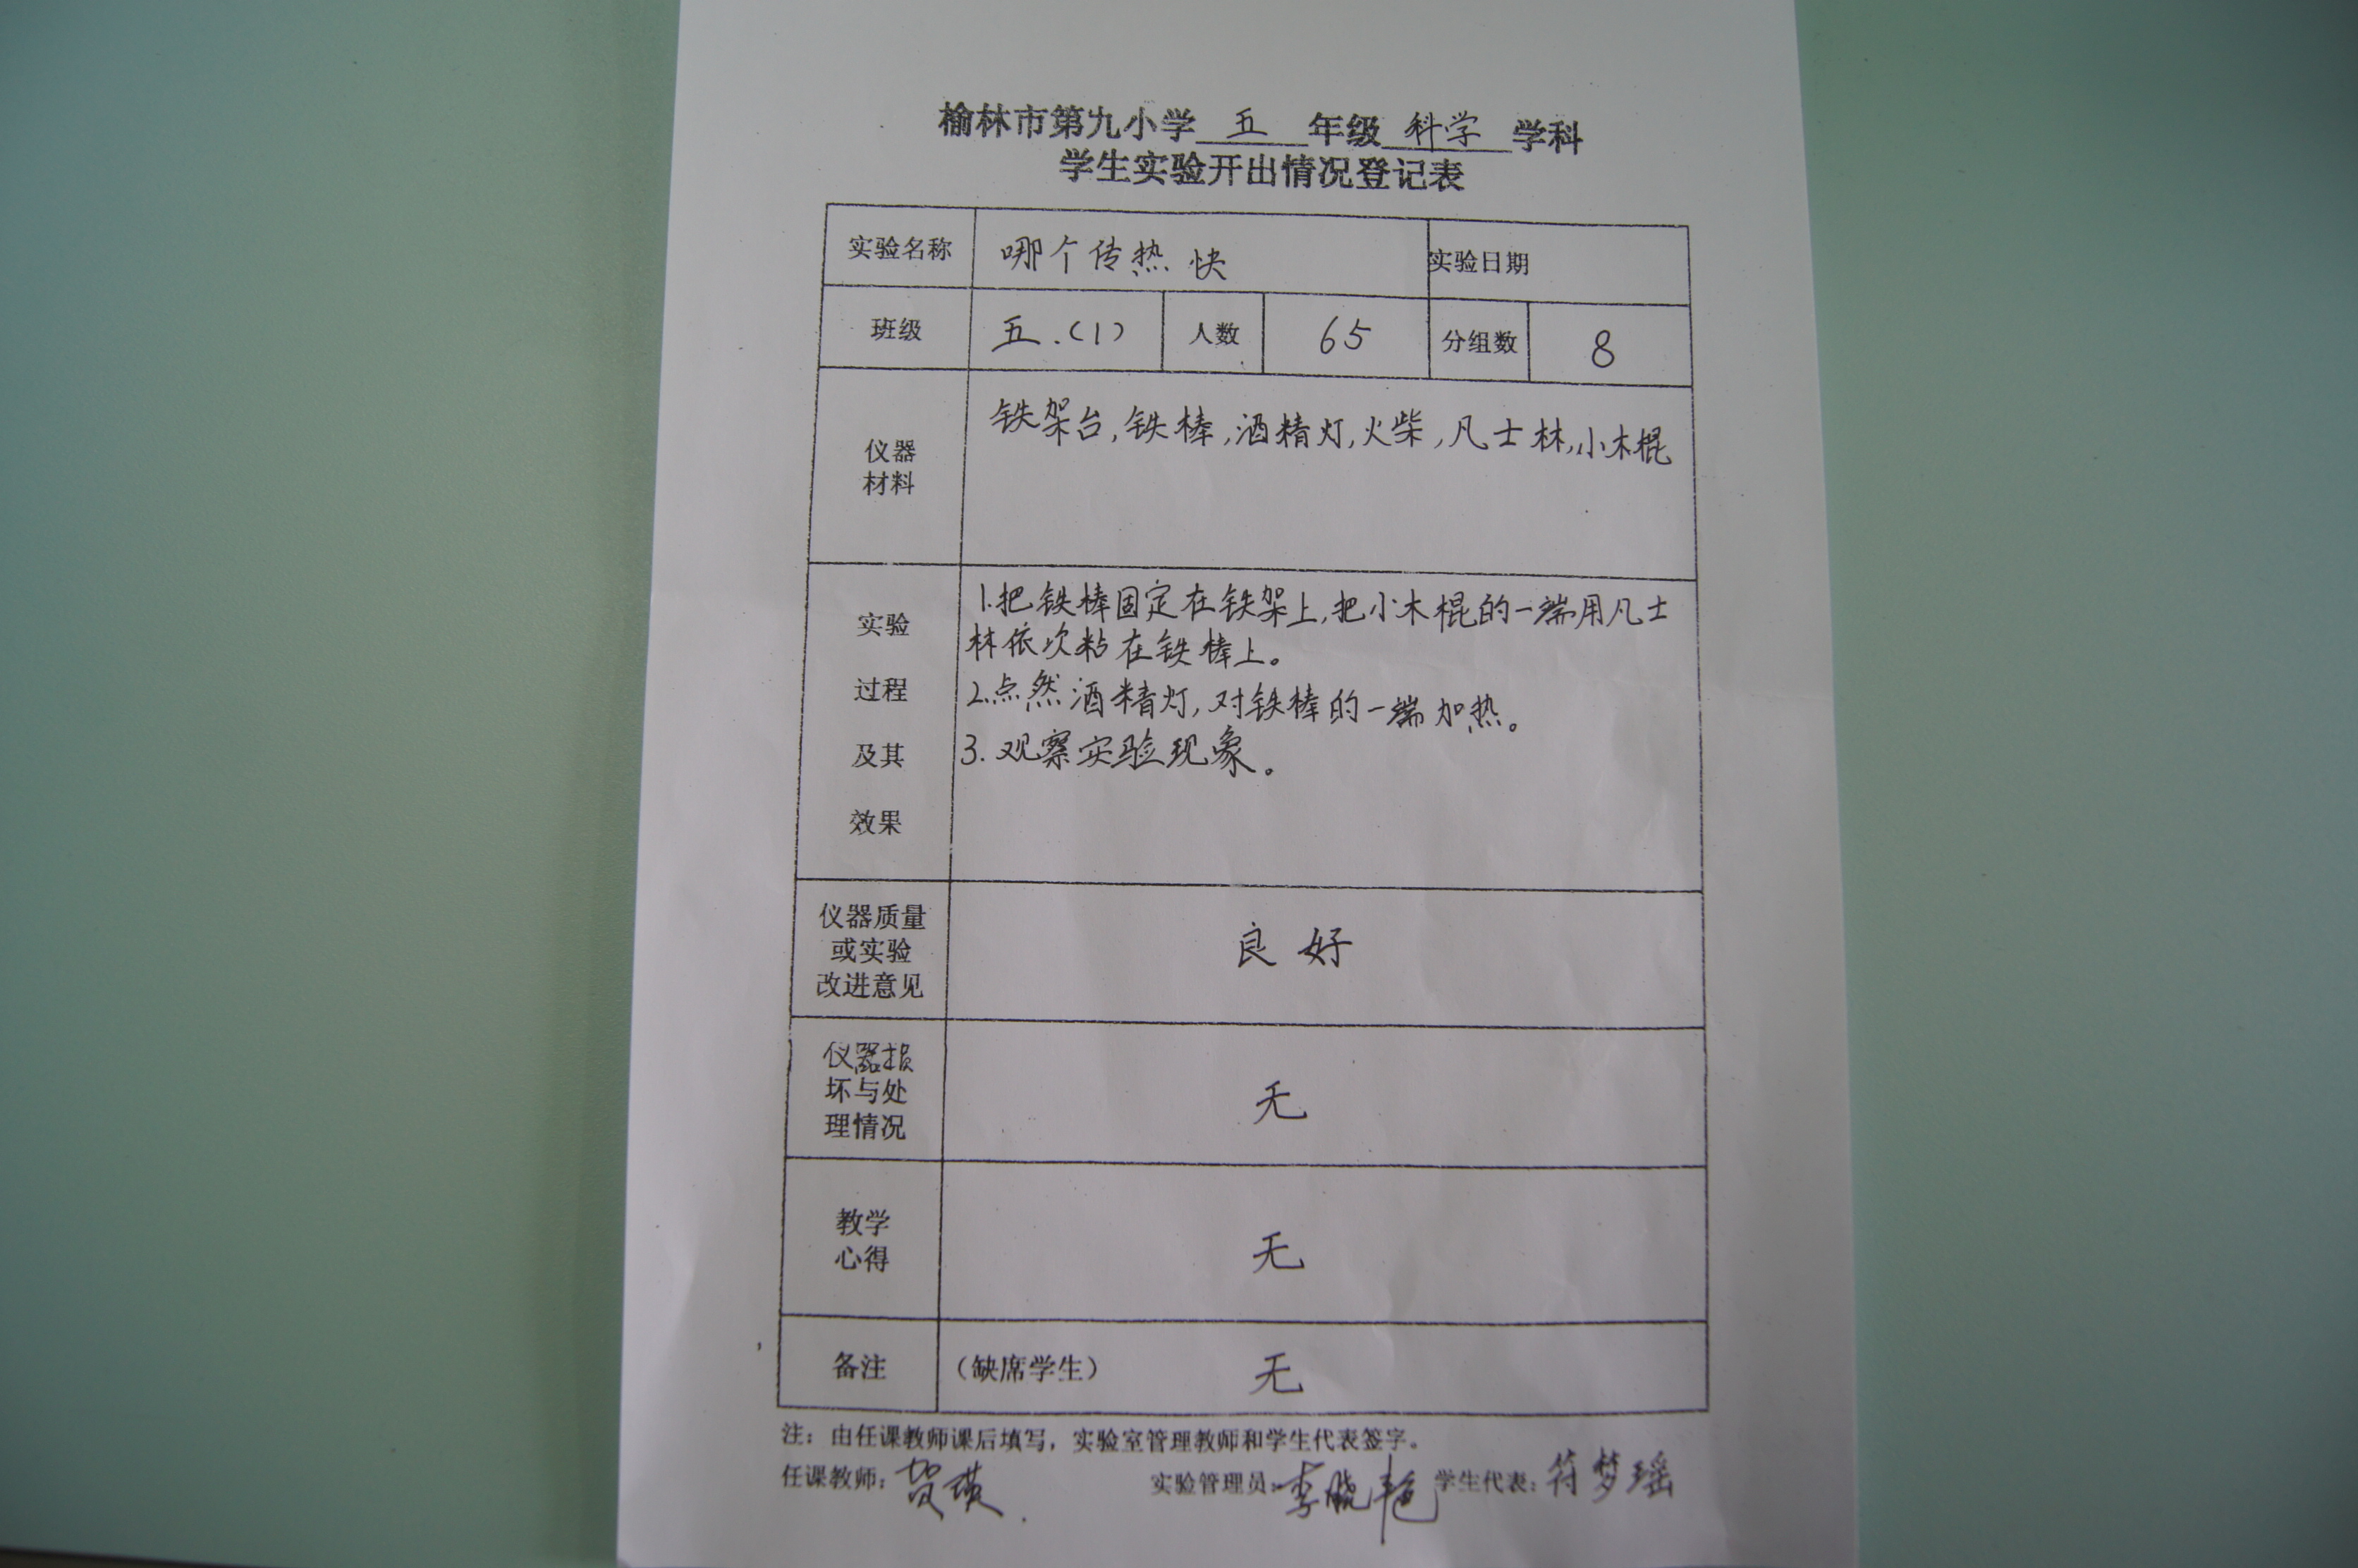 榆林市第九小学 五 年级 科学 学科
学生实验开出情况登记表
实验名称 哪个传热快 实验日期
班级 五.(1) 人数 65 分组数 8
仪器
材料
铁架台,铁棒,酒精灯,火柴,凡士林,小木棍
实验
过程
及其
效果
1.把铁棒固定在铁架上,把小木棍的一端用凡士
林依次粘在铁棒上。
2.点然酒精灯,对铁棒的一端加热。
3.观察实验现象。
仪器质量
或实验
改进意见
良好
仪器损
坏与处
理情况
无
教学
心得
无
备注 (缺席学生) 无
注：由任课教师课后填写，实验室管理教师和学生代表签字。
任课教师：贺瑛 实验管理员：李晓艳 学生代表：符梦瑶